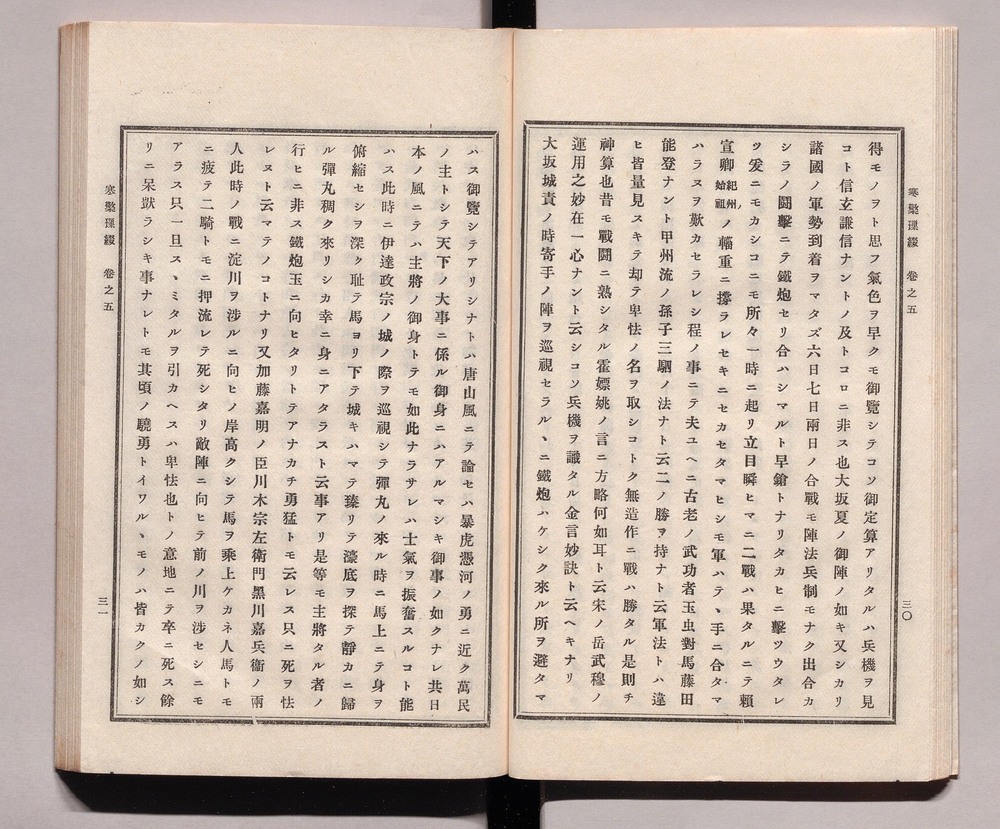 寒檠璅綴　卷之五
三〇
得モノヲト思フ氣色ヲ早クモ御覽シテコソ御定算アリタルハ兵機ヲ見
コト信玄謙信ナントノ及トコロニ非ス也大坂夏ノ御陣ノ如キ又シカリ
諸國ノ軍勢到着ヲマタズ六日七日兩日ノ合戰モ陣法兵制モナク出合カ
シラノ鬪擊ニテ鐵炮セリ合ハシマルト早鎗トナリタカヒニ擊ツウタレ
ツ爰ニモカシコニモ所々一時ニ起リ立目瞬ヒマニ二戰ハ果タルニテ賴
宣卿紀州始祖ノ輜重ニ撐ラレセキニセカセタマヒシモ軍ハテヽ手ニ合タマ
ハラヌヲ歎カセラレシ程ノ事ニテ夫ユヘニ古老ノ武功者玉虫對馬藤田
能登ナント甲州流ノ孫子三駟ノ法ナト云二ノ勝ヲ持ナト云軍法トハ違
ヒ皆量見スキテ却テ卑怯ノ名ヲ取シコトク無造作ニ戰ハ勝タル是則チ
神算也昔モ戰鬪ニ熟シタル霍嫖姚ノ言ニ方略何如耳ト云宋ノ岳武穆ノ
運用之妙在一心ナント云シコソ兵機ヲ識タル金言妙訣ト云ヘキナリ
大坂城責ノ時寄手ノ陣ヲ巡視セラルヽニ鐵炮ハケシク來ル所ヲ避タマ
ハス御覽シテアリシナトハ唐山風ニテ論セハ暴虎憑河ノ勇ニ近ク萬民
ノ主トシテ天下ノ大事ニ係ル御身ニハアルマシキ御事ノ如クナレ共日
本ノ風ニテハ主將ノ御身トテモ如此ナラサレハ士氣ヲ振奮スルコト能
ハス此時ニ伊達政宗ノ城ノ際ヲ巡視シテ彈丸ノ來ル時ニ馬上ニテ身ヲ
俯縮セシヲ深ク耻テ馬ヨリ下テ城キハマテ臻リテ濠底ヲ探テ靜カニ歸
ル彈丸稠ク來リシカ幸ニ身ニアタラスト云事アリ是等モ主將タル者ノ
行ヒニ非ス鐵炮玉ニ向ヒタリトテアナカチ勇猛トモ云レス只ニ死ヲ怯
レヌト云マテノコトナリ又加藤嘉明ノ臣川木宗左衛門黑川嘉兵衞ノ兩
人此時ノ戰ニ淀川ヲ涉ルニ向ヒノ岸高クシテ馬ヲ乘上ケカネ人馬トモ
ニ疲テ二騎トモニ押流レテ死シタリ敵陣ニ向ヒテ前ノ川ヲ涉セシニモ
アラス只一旦スヽミタルヲ引カヘスハ卑怯也トノ意地ニテ卒ニ死ス餘
リニ呆獃ラシキ事ナレトモ其頃ノ驍勇トイワルヽモノハ皆カクノ如シ
寒檠璅綴　卷之五
三一